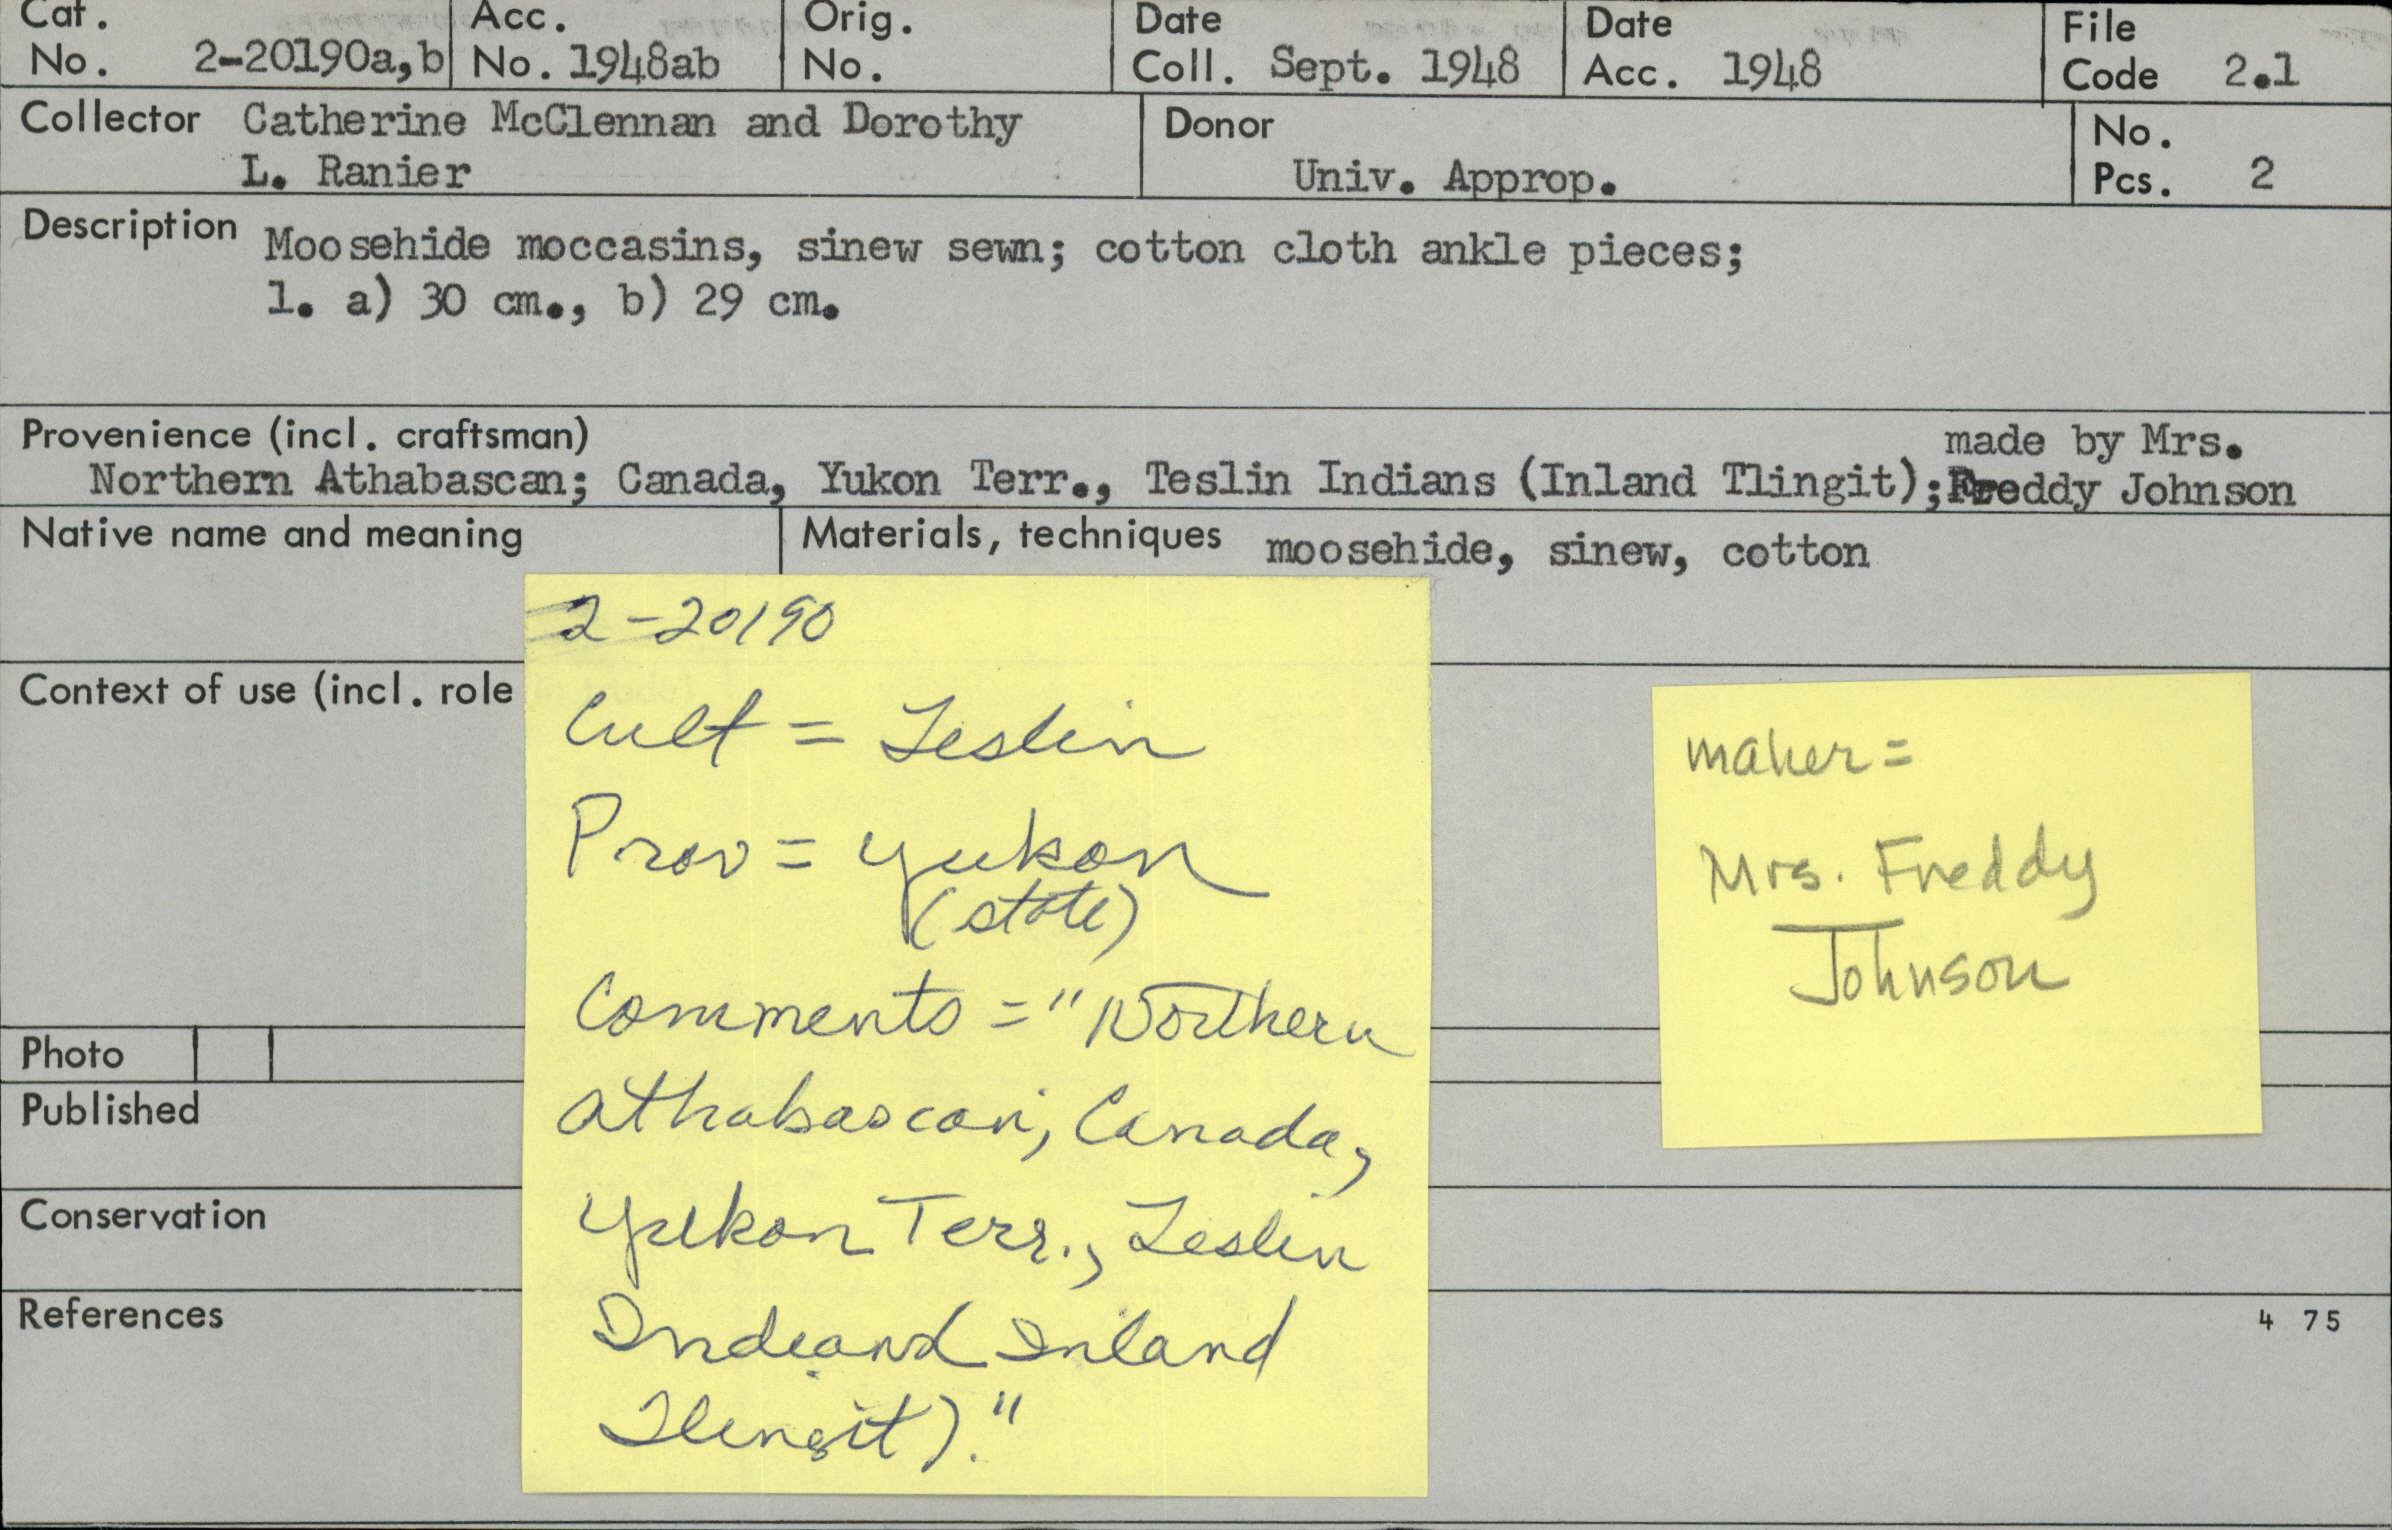 Cat. No. 2-20190a,b
Acc. No. 1948ab
Orig. No.
Date Coll. Sept. 1948
Date Acc. 1948
File Code 2.1
Collector Catherine McClennan and Dorothy
L. Ranier
Donor
Univ. Approp.
No. Pcs. 2
Description Moosehide moccasins, sinew sewn; cotton cloth ankle pieces;
l. a) 30 cm., b) 29 cm.
Provenience (incl. craftsman)
made by Mrs.
Northern Athabascan; Canada, Yukon Terr., Teslin Indians (Inland Tlingit); Freddy Johnson
Native name and meaning
Materials, techniques moosehide, sinew, cotton
Context of use (incl. role
Photo
Published
Conservation
References
4 75
2-20190
Cult = Teslin
Prov = Yukon
(state)
Comments = "Northern
Athabascan, Canada,
Yukon Terr., Teslin
Indians Inland
Tlingit)."
maker =
Mrs. Freddy
Johnson